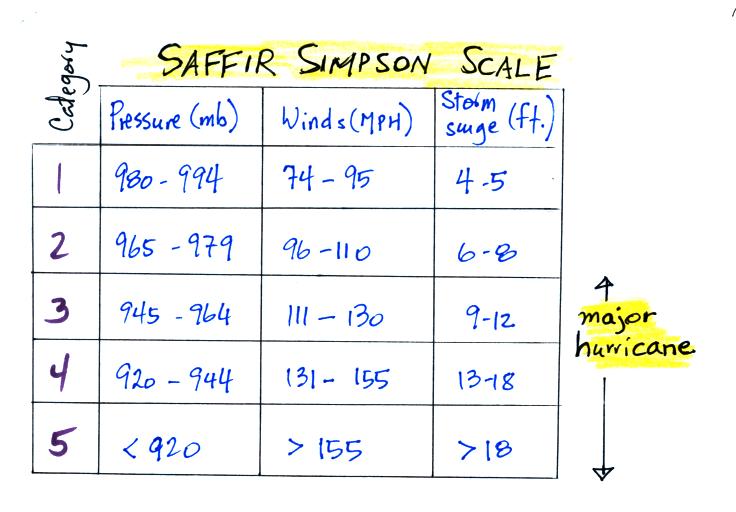 SAFFIR SIMPSON SCALE
Category
Pressure (mb) Winds (MPH) Storm surge (ft.)
1 980 - 994 74 - 95 4 - 5
2 965 - 979 96 - 110 6 - 8
3 945 - 964 111 - 130 9 - 12
4 920 - 944 131 - 155 13 - 18
5 < 920 > 155 > 18
major
hurricane